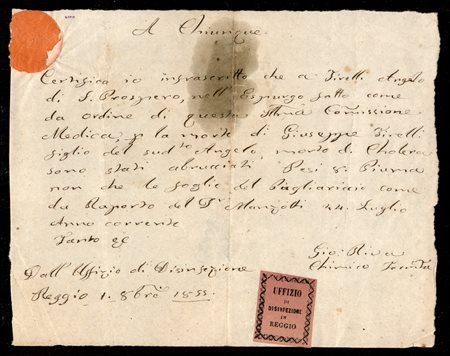 A Chiunque
Certifico io infrascritto che a Firelli Angelo
di S. Prospero, nell'Espurgo fatto come
da ordine di questa Commissione
Medica, p la morte di Giuseppe Firelli
figlio del sud.to Angelo, morto di Cholera
sono stati abruciati Pesi 8. Piuma
non che le foglie del Pagliariccio come
da Raporto del Sr. Manzotti 24. Luglio
Anno corrente
Tanto
Gio: Riva
Chimico
Dall'Uffizio di Disinfezione
Reggio 1. 8bre 1855
UFFIZIO
DI
DISINFEZIONE
IN
REGGIO